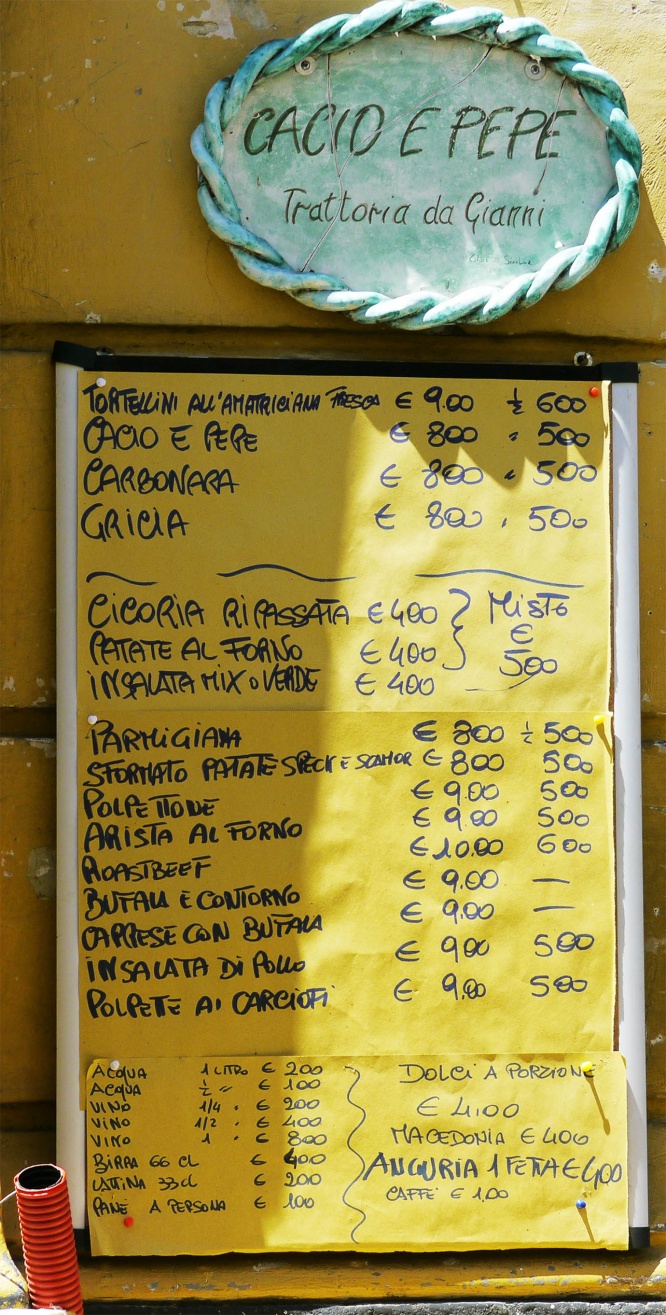 CACIO E PEPE
Trattoria da Gianni
TORTELLINI ALL'AMATRICIANA FRESCA € 9.00 ½ 600
CACIO E PEPE € 800 " 500
CARBONARA € 800 " 500
GRICIA € 800 " 500
CICORIA RIPASSATA € 400
PATATE AL FORNO € 400
INSALATA MIX O VERDE € 400
MISTO
€
500
PARMIGIANA € 800 ½ 500
SFORMATO PATATE SPECK E SCAMOR € 800 500
POLPETTONE € 9.00 500
ARISTA AL FORNO € 9.00 500
ROASTBEEF € 10.00 600
BUFALA E CONTORNO € 9.00 —
CAPRESE CON BUFALA € 9.00 —
INSALATA DI POLLO € 900 500
POLPETE AI CARCIOFI € 9.00 500
ACQUA 1 LITRO € 200
ACQUA ½ " € 100
VINO 1/4 " € 200
VINO 1/2 " € 400
VINO 1 " € 800
BIRRA 66 CL € 400
LATTINA 33 cl € 200
PANE A PERSONA € 100
DOLCI A PORZIONE
€ 4.00
MACEDONIA € 400
ANGURIA 1 FETTA € 400
CAFFE' € 1,00